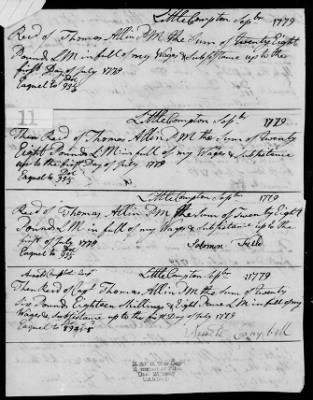 Little Compton Sepbr 1779
Recd of Thomas Allin P M the Sum of twenty Eight
Pounds L M in full of my Wages & Subsistance up to the
first Day of July 1779
Dos
Eaquel to 93⅓
11
Little Compton Sepbr 1779
Then Recd of Thomas Allin P M the Sum of twenty
Eight Pounds L M in full of my Wages & Subsistance
up to the first Day of July 1779
Dol
Eaquel to 93⅓
Little Compton Sepbr 1779
Recd of Thomas Allin P M the Sum of Twenty Eight
Pounds L M in full of my Wages & Subsistance up to the
first of July 1779
Dol
Eaquel to 93⅓
Solomon
Little Compton Sepbr 1779
Then Recd of Capt Thomas Allin P M the Sum of twenty
Six Pounds Eighteen Shillings & Eight Pence L M in full of my
Wages & Subsistance up to the first Day of July 1779
Eaquel to
Campbell